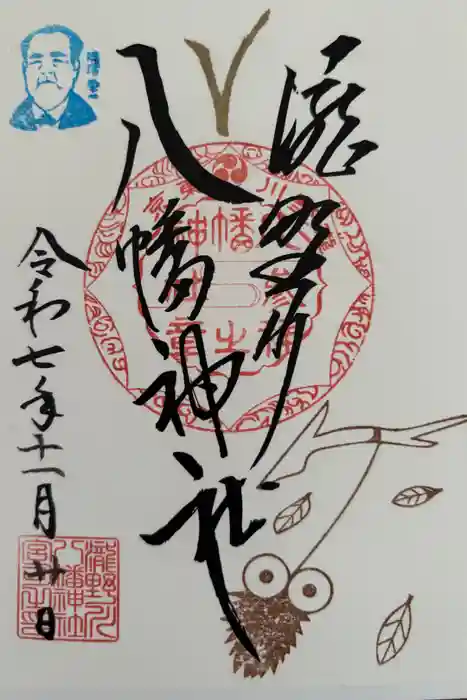 瀧野川
八幡神社
令和七年十一月廿日
瀧野川
八幡神社